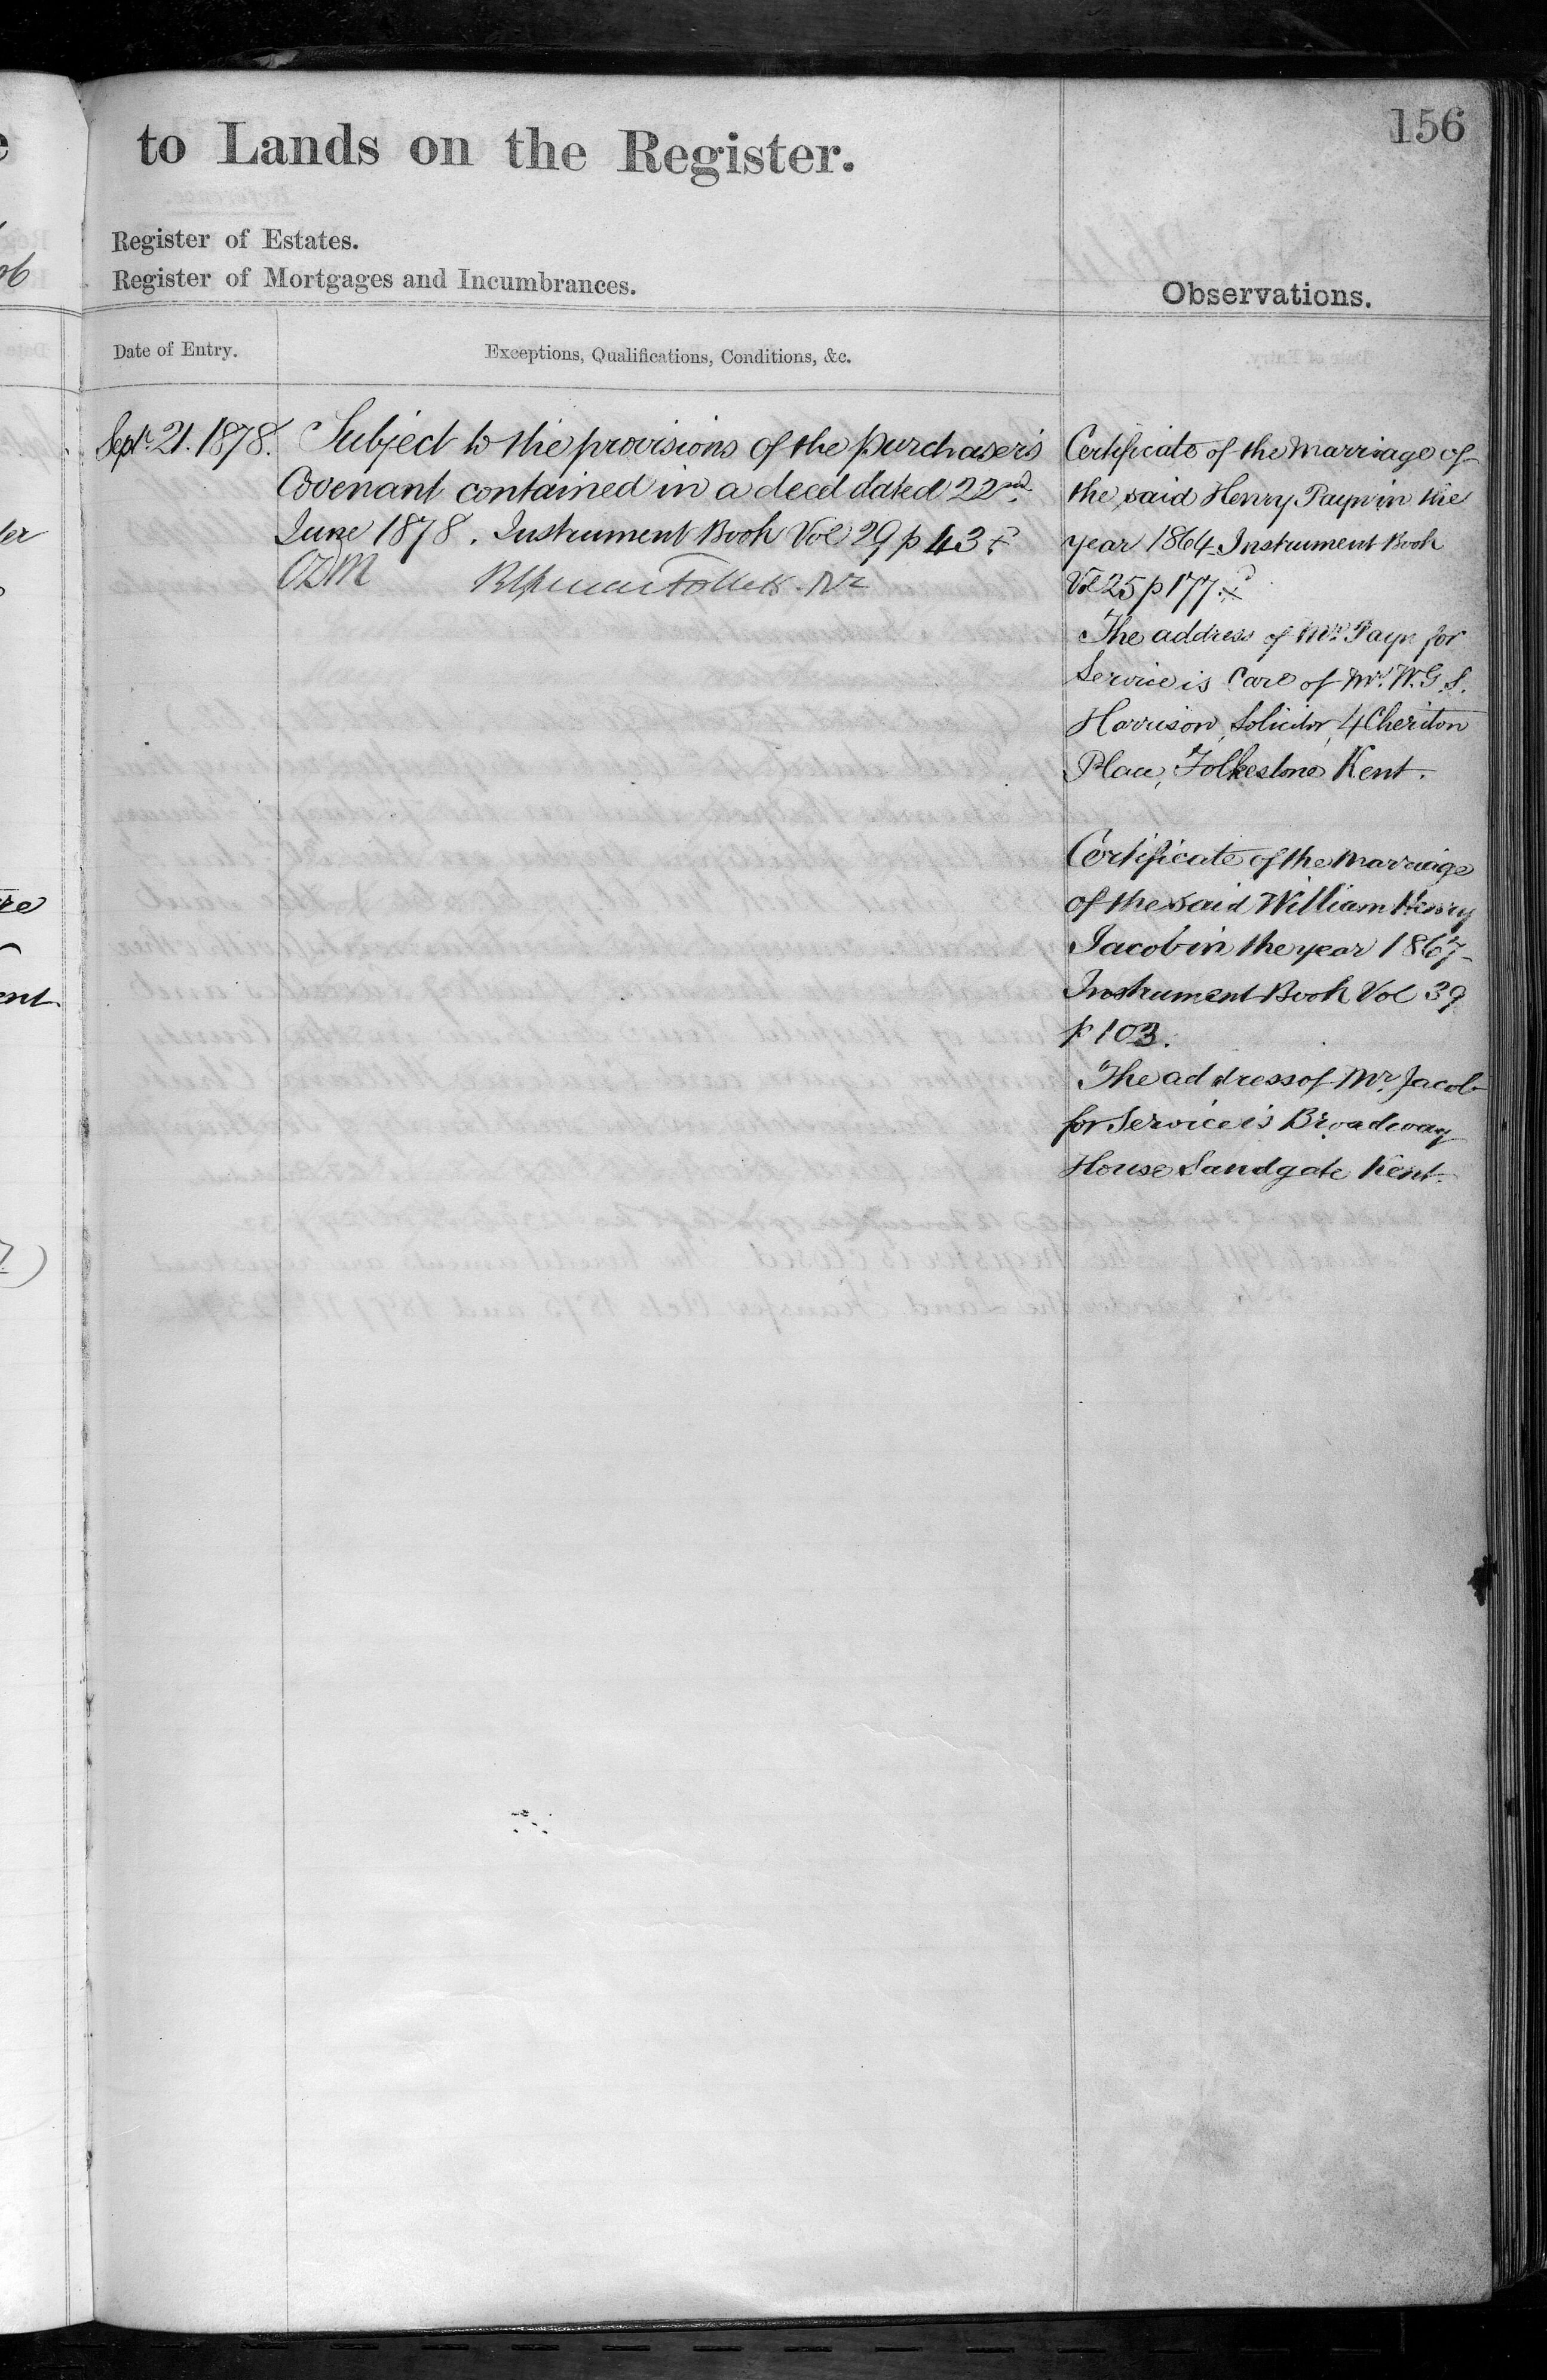 156
to Lands on the Register.
Register of Estates.
Register of Mortgages and Incumbrances.
Observations.
Date of Entry.
Exceptions, Qualifications, Conditions, &c.
Sept. 21. 1878.
Subject to the provisions of the purchaser's
Covenant contained in a deed dated 22nd
June 1878. Instrument Book Vol 29 p 43
Certificate of the Marriage of
the said Henry Payn in the
year 1864 Instrument Book
Vol 25 p 177
The address of Mr. Payn for
Service is Care of Mr. W. G. S.
Harrison, Solicitor, 4 Cheriton
Place, Folkestone Kent.
Certificate of the Marriage
of the said William Henry
Jacob in the year 1867
Instrument Book Vol 39
p 103.
The address of Mr. Jacob
for Service is Broadway
House Sandgate Kent.